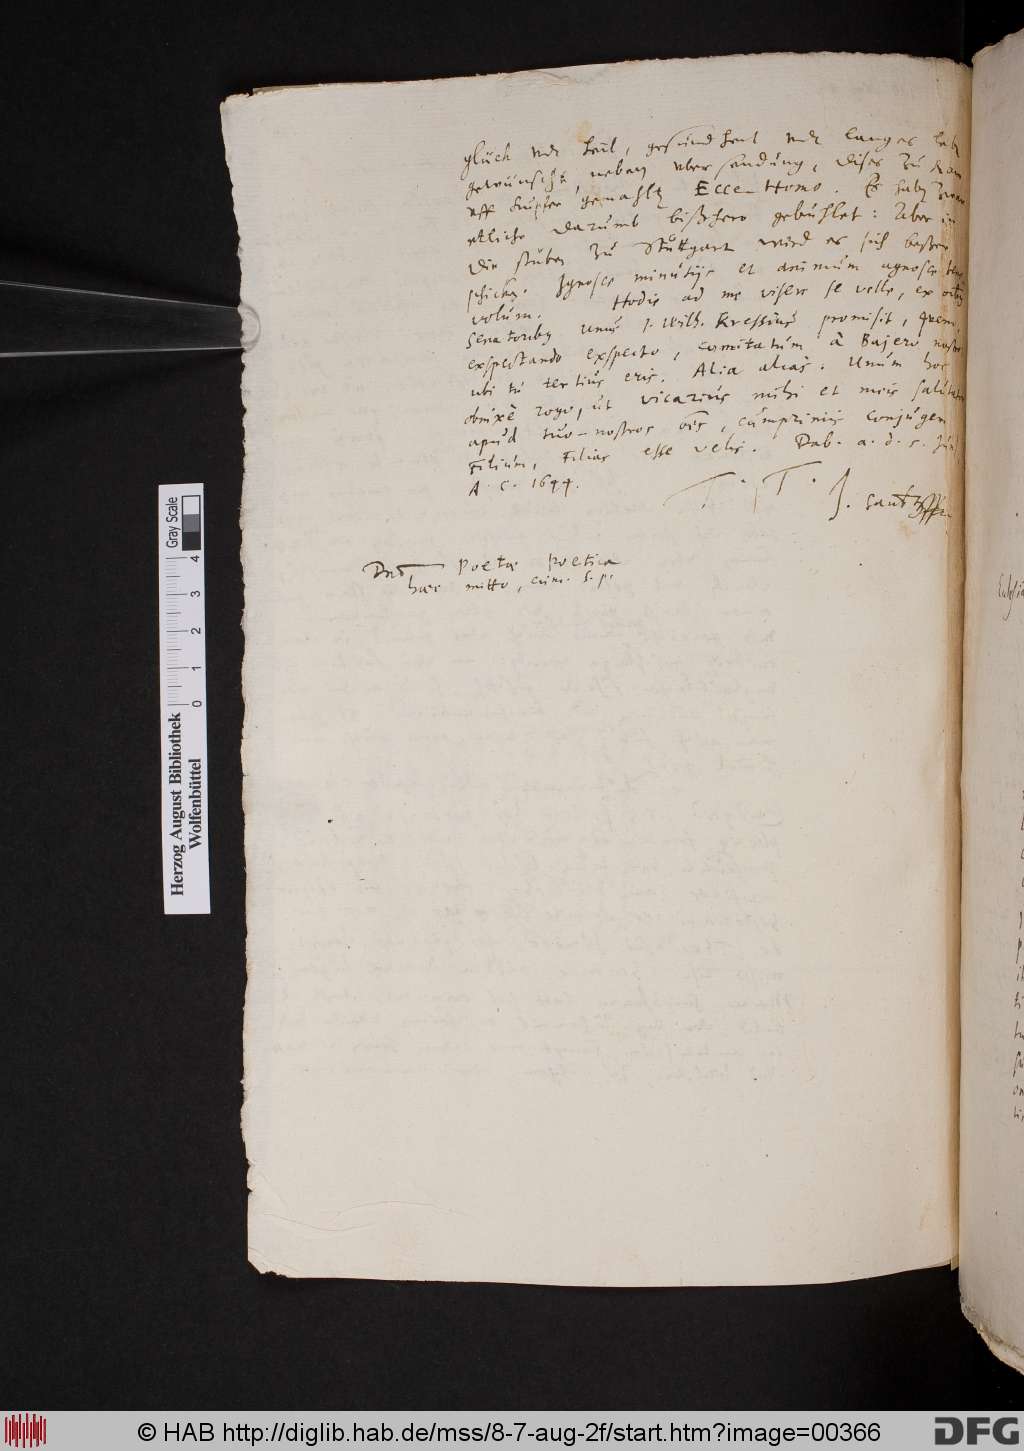 glück und heil, gesundheit und langes leb
gewünscht, neben übersendung, dises zu Rom
uff kupfer gemahltz Ecce Homo. Es hab zwar
etliche darumb bißhero gebühlet: Aber in
die stuben zu Stuttgart wird es sich besser
schicken. Ignosce minutijs et animum agnosce bene
volum. Hodie ad me visere se velle, ex octo
senatoribus unus J. Wilh. Kressius promisit, quem
exspectando exspecto, comitatum à Bajero nostro
ubi tu tertius eris. Alia aliàs. Unum hoc
obnixè rogo, ut vicarius mihi et meis salutato
apud tuo-nostros oës, cumprimis conjugem
Filium, Filias esse velis. Dab. a. d. 5. Jun
A. C. 1644.
T. T. J.
Dnō Poetæ poetica
haec mitto, cum. S. p.
Gray Scale
0 1 2 3 4
Herzog August Bibliothek
Wolfenbüttel
© HAB http://diglib.hab.de/mss/8-7-aug-2f/start.htm?image=00366
DFG